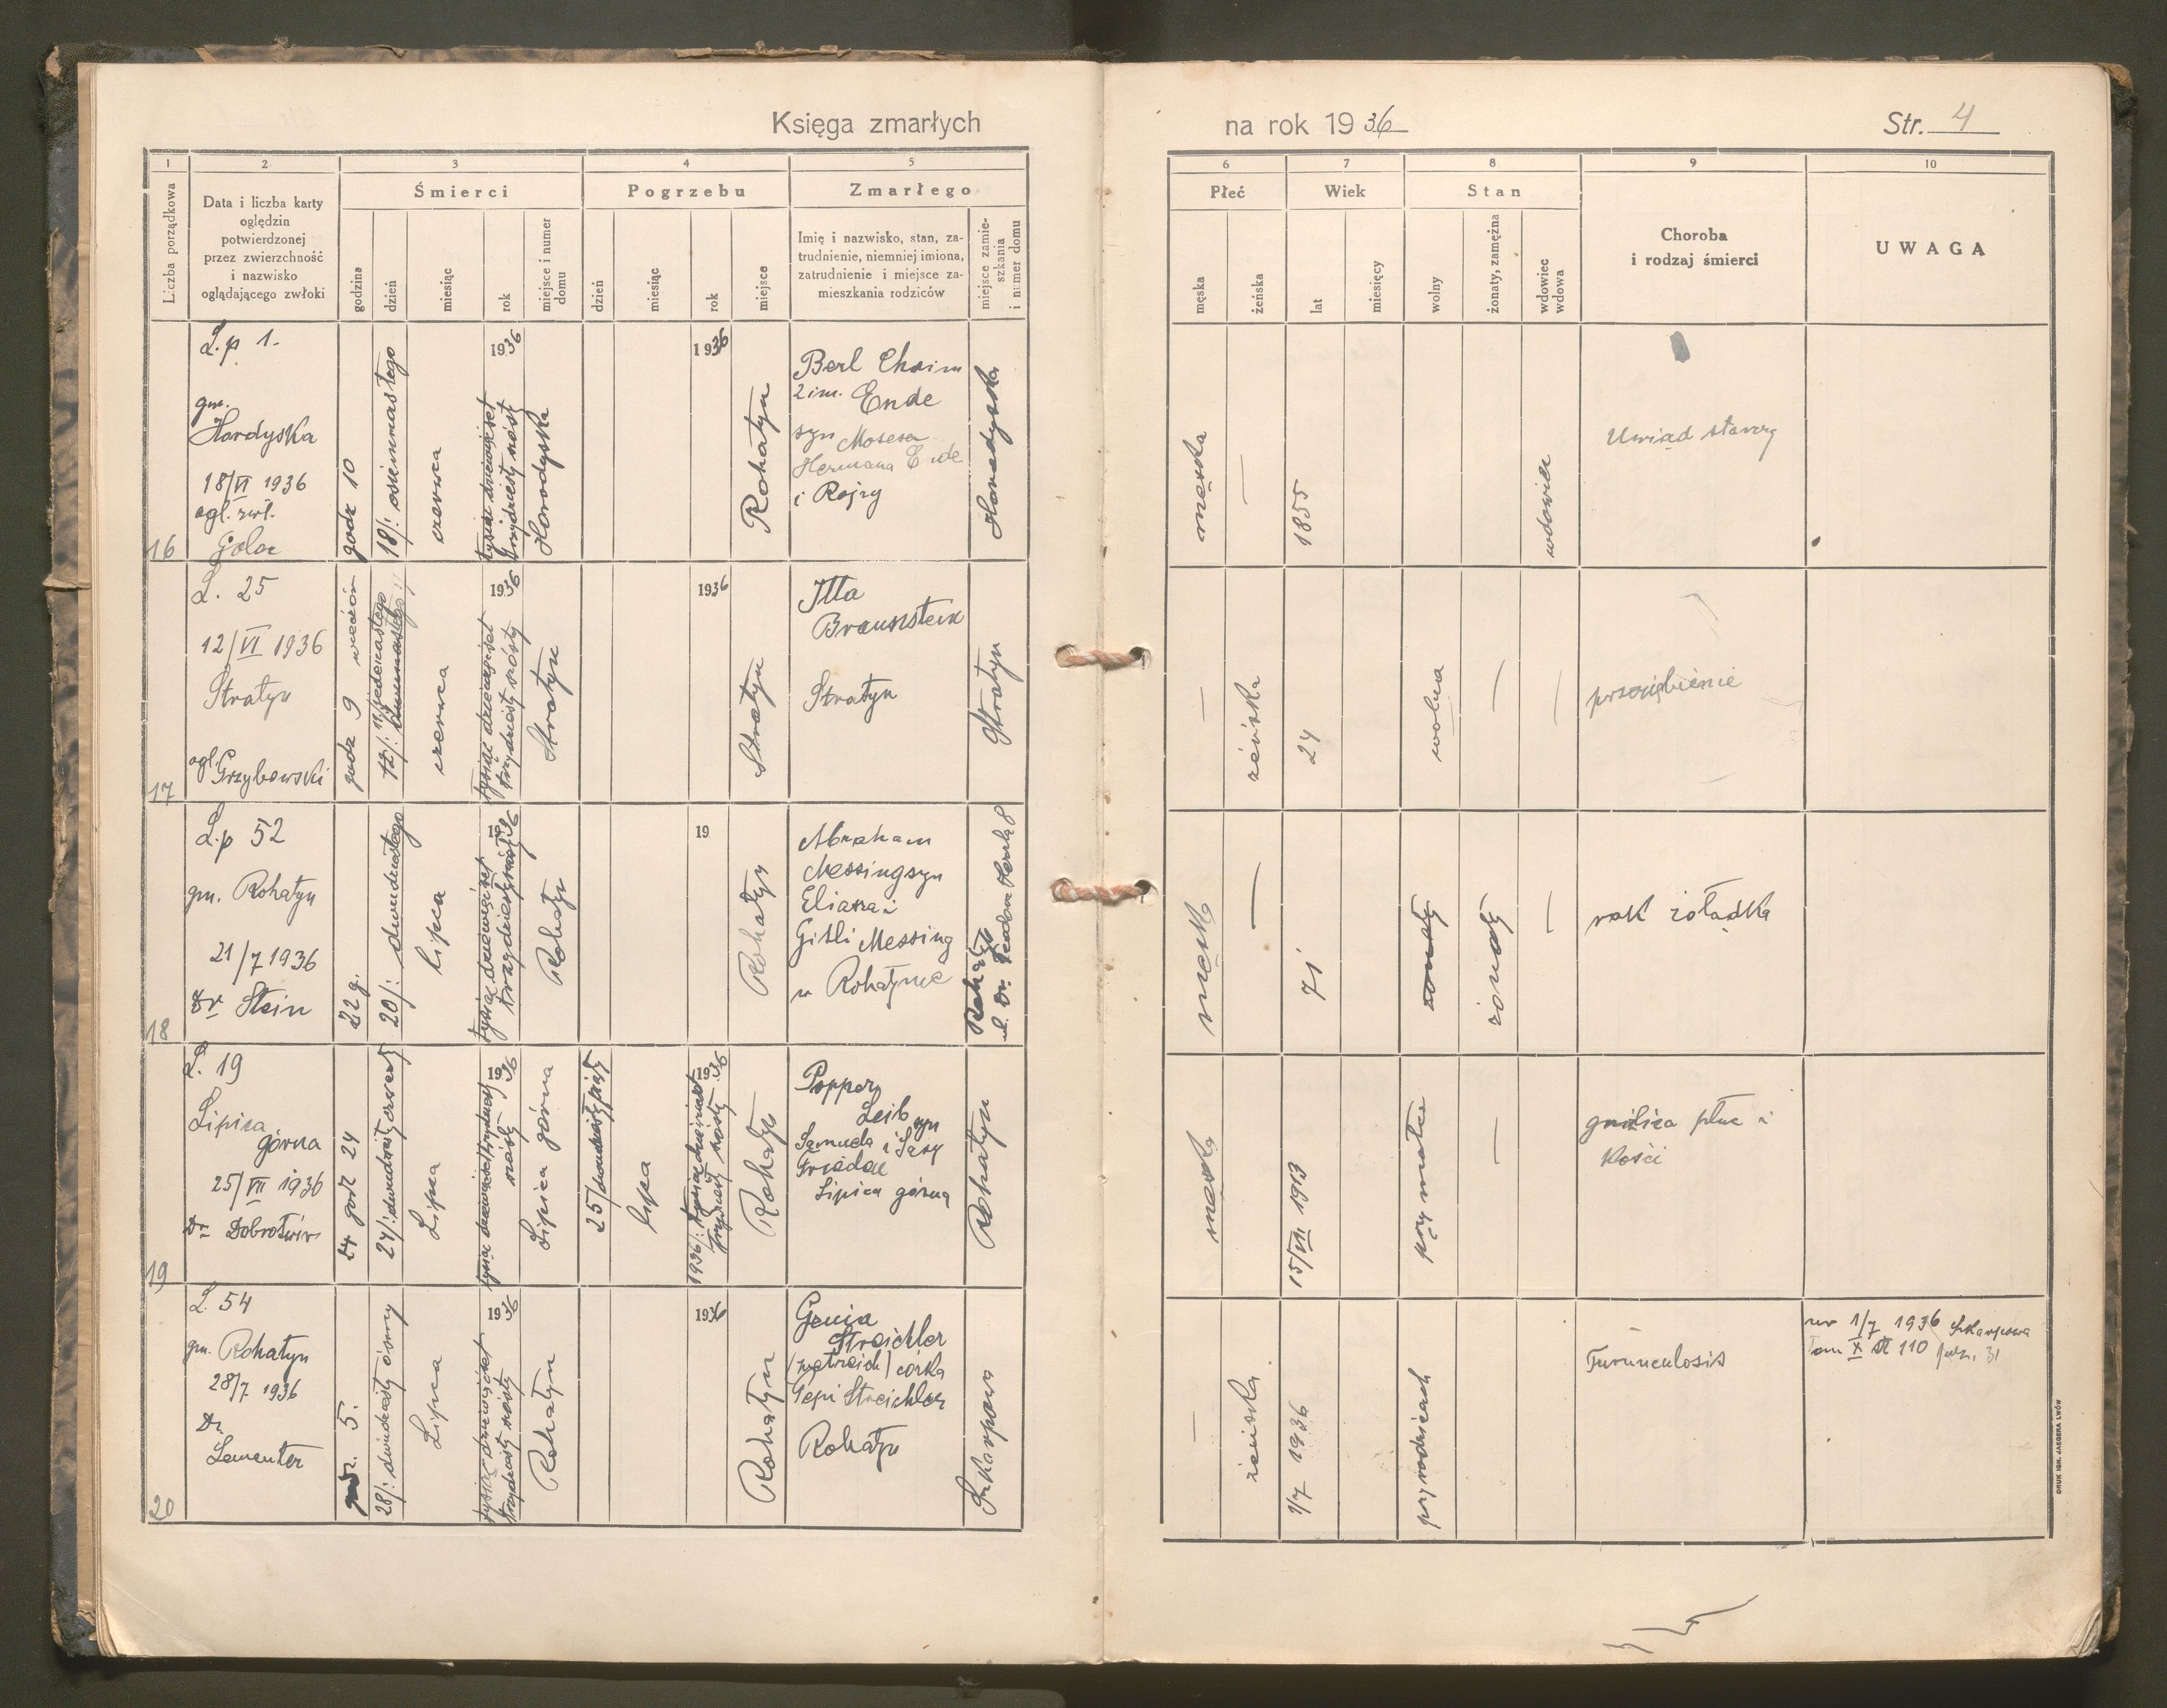 Księga zmarłych
na rok 1936
Str. 4
1
2
3
4
5
6
7
8
9
10
Liczba porządkowa
Data i liczba karty
oględzin
potwierdzonej
przez zwierzchność
i nazwisko
oglądającego zwłoki
Śmierci
godzina
dzień
miesiąc
rok
miejsce i numer
domu
Pogrzebu
dzień
miesiąc
rok
miejsce
Zmarłego
Imię i nazwisko, stan, za-
trudnienie, niemniej imiona,
zatrudnienie i miejsce za-
mieszkania rodziców
miejsce zamie-
szkania
i numer domu
Płeć
męska
żeńska
Wiek
lat
miesięcy
Stan
wolny
żonaty, zamężna
wdowiec
wdowa
Choroba
i rodzaj śmierci
UWAGA
16
L.p 1.
gm.
Hordyska
18/VI 1936
ogl. zwł.
godz 10
18/: osiemnastego
czerwca
1936
tysiąc dziewięćset
trzydziesty szósty
Horodyska
1936
Rohatyn
Berl Chaim
2 im. Ende
syn Mosesa
Hermana Ende
i Rojzy
Horodyska
męska
—
1855
wdowiec
Uwiąd starczy
17
L. 25
12/VI 1936
Stratyn
ogl. Grzybowski
godz 9 wieczór
12/: dwunastego
11/ jedenastego
czerwca
1936
tysiąc dziewięćset
trzydziesty szósty
Stratyn
1936
Stratyn
Itta
Braunstein
Stratyn
Stratyn
—
żeńska
24
wolna
—
—
przeziębienie
18
L.p 52
gm. Rohatyn
21/7 1936
Dr Stein
22 g.
20/: dwudziestego
Lipca
1936
tysiąc dziewięćset
trzydziesty szósty
Rohatyn
19
Rohatyn
Abraham
Messing syn
Eliasza i
Gitli Messing
w Rohatynie
Rohatyn
męska
—
71
żonaty
żonaty
—
rak żołądka
19
L. 19
Lipica
górna
25/VII 1936
Dr
24 godz 24
24/: dwudziesty czwarty
Lipca
1936
tysiąc dziewięćset trzydziesty
szósty
Lipica górna
25/ dwudziesty piąty
lipca
1936
1936/: tysiąc dziewięćset
trzydziesty szósty
Rohatyn
Popper
Leib syn
Samuela i Sary
Lipica górna
Rohatyn
męska
15/VII 1913
przy matce
—
gruźlica płuc i
kości
20
L. 54
gm. Rohatyn
28/7 1936
Dr
godz. 5.
28/: dwudziesty ósmy
Lipca
1936
tysiąc dziewięćset
trzydziesty szósty
Rohatyn
1936
Rohatyn
Genia
Streichler
córka
Pepi Streichler
Rohatyn
Szkarpowa
—
żeńska
1/7 1936
przy rodzicach
Furunculosis
ur 1/7 1936 Szkarpowa
Tom X st 110
DRUK IGN. JAEGERA LWÓW